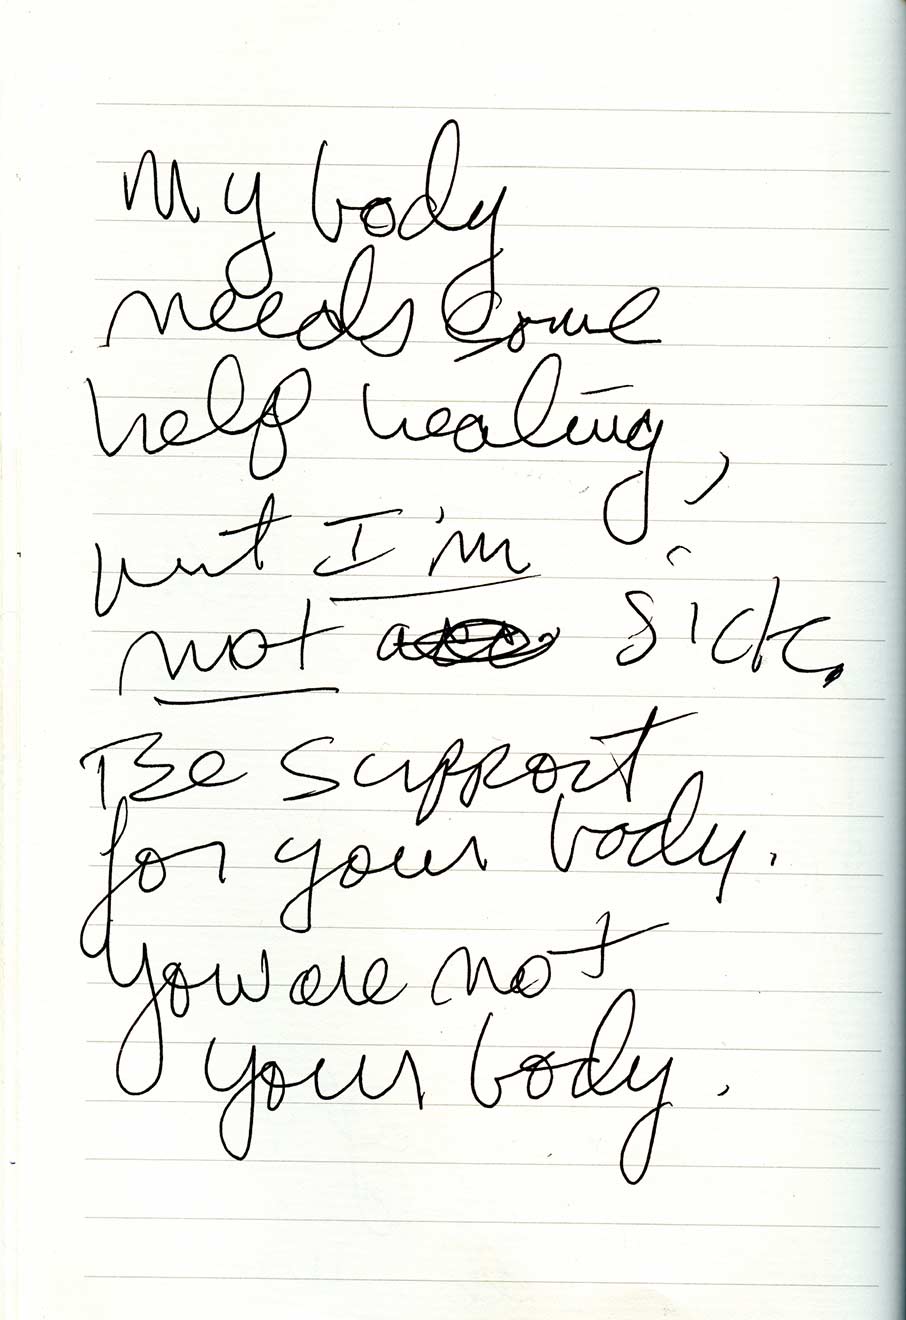 My body
needs some
help healing,
but I'm
not sick.
Be support
for your body.
You are not
your body.